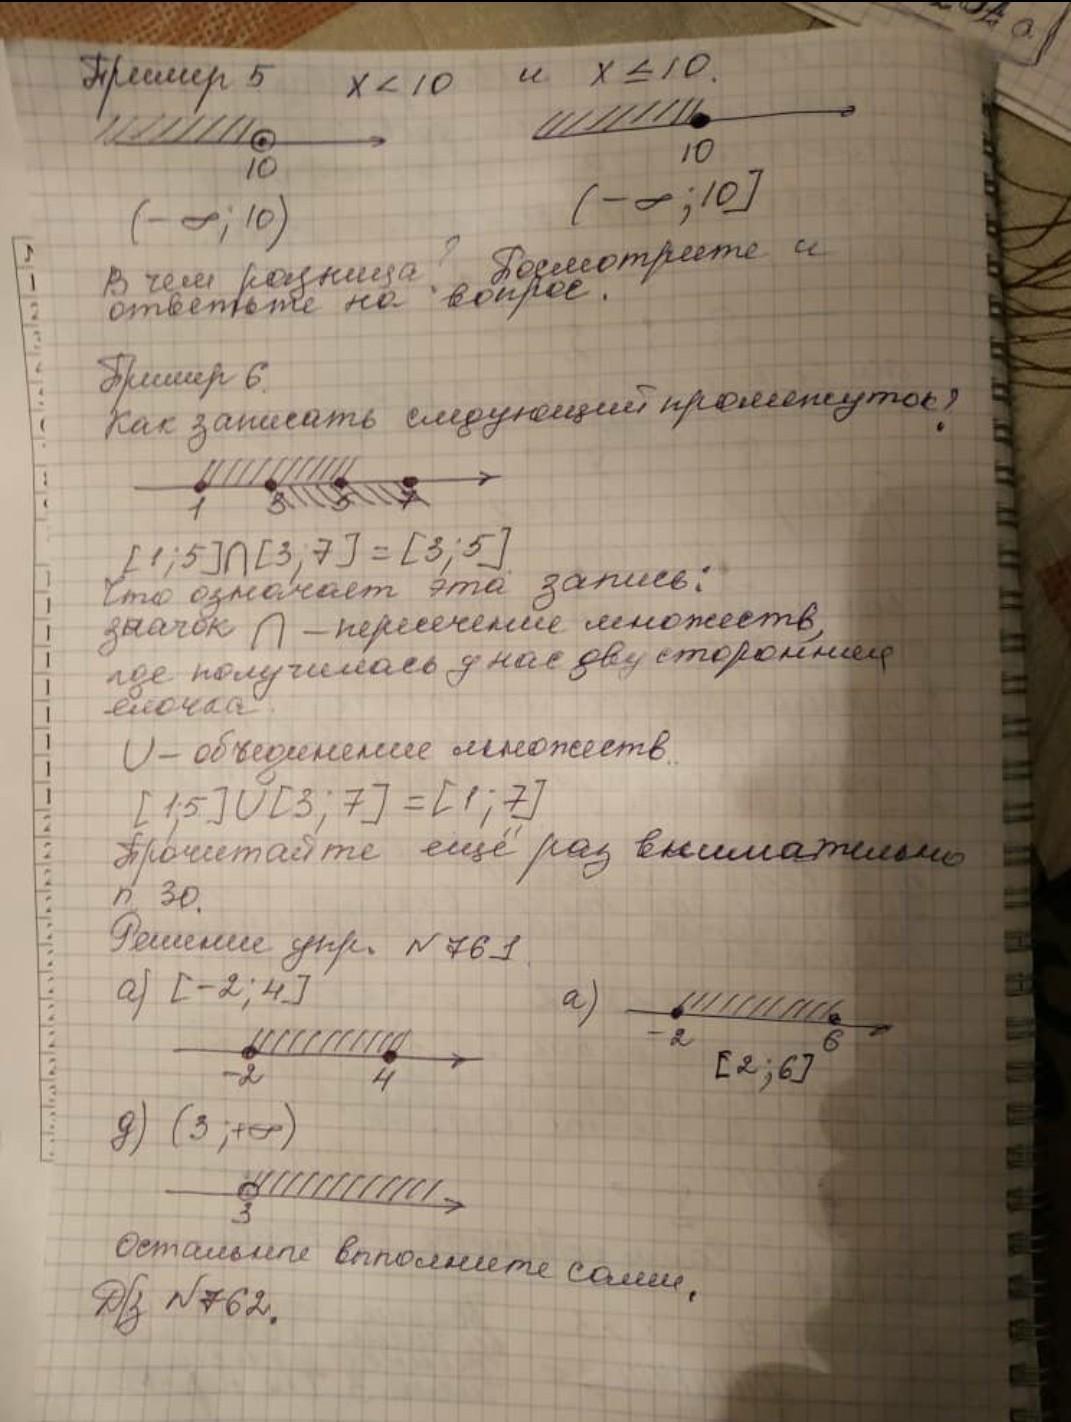 Пример 5 x < 10 и x ≤ 10.
10 10
(-∞; 10) (-∞; 10]
В чем разница? Посмотрите и
ответьте на вопрос.
Пример 6.
Как записать следующий промежуток?
1 3 5 7
[1; 5]∩[3; 7] = [3; 5]
Что означает эта запись:
значок ∩ – пересечение множеств,
где получилась у нас двусторонняя
ёлочка.
∪ – объединение множеств.
[1;5]∪[3; 7] = [1; 7]
Прочитайте ещё раз внимательно
п 30.
Решение упр. №761.
а) [-2; 4] а)
-2 6
-2 4 [2; 6]
д) (3; +∞)
3
Остальные выполните сами.
Д/з №762.